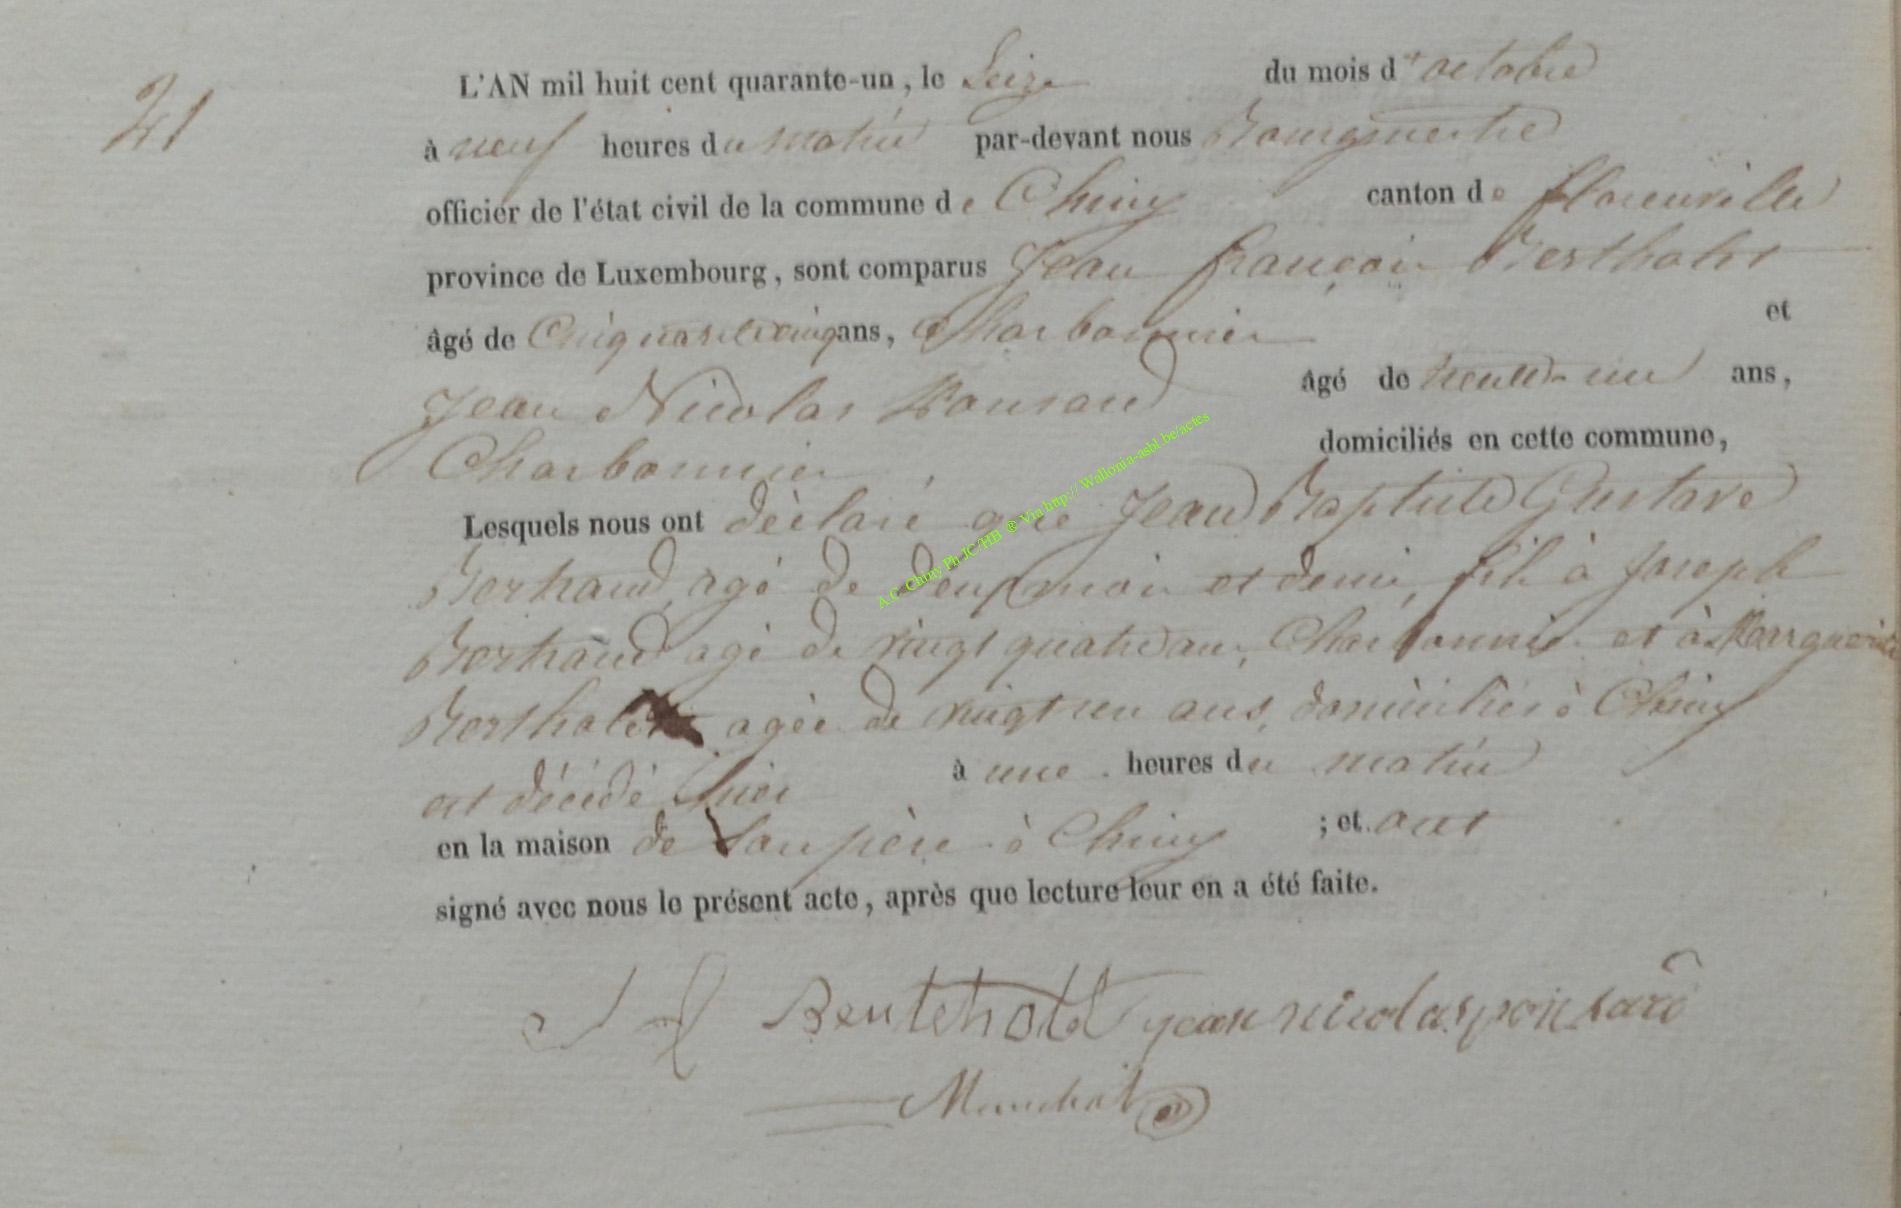 21
L'AN mil huit cent quarante-un, le Seize du mois d'octobre
à neuf heures du matin par-devant nous Bourgmestre
officier de l'état civil de la commune de Chiny canton de florenville
province de Luxembourg, sont comparus Jean françois Bertholet
âgé de Cinquante cinq ans, Charbonnier et
Jean Nicolas Ponsard âgé de trente-un ans,
Charbonnier domiciliés en cette commune,
Lesquels nous ont déclaré que Jean Baptiste Gustave
Bertrand, agé de deux mois et demi, fils à Joseph
Bertrand agé de vingt quatre ans, Charbonnier et à Marguerite
Bertholet agée de vingt un ans, domiciliés à Chiny
est décédé hier à une heures du matin
en la maison de Son père à Chiny ; et ont
signé avec nous le présent acte, après que lecture leur en a été faite.
J f Bentehold jean nicolas ponsard
A.C. Chiny Ph JC/HB ® Via http:// Wallonia-asbl.be/actes